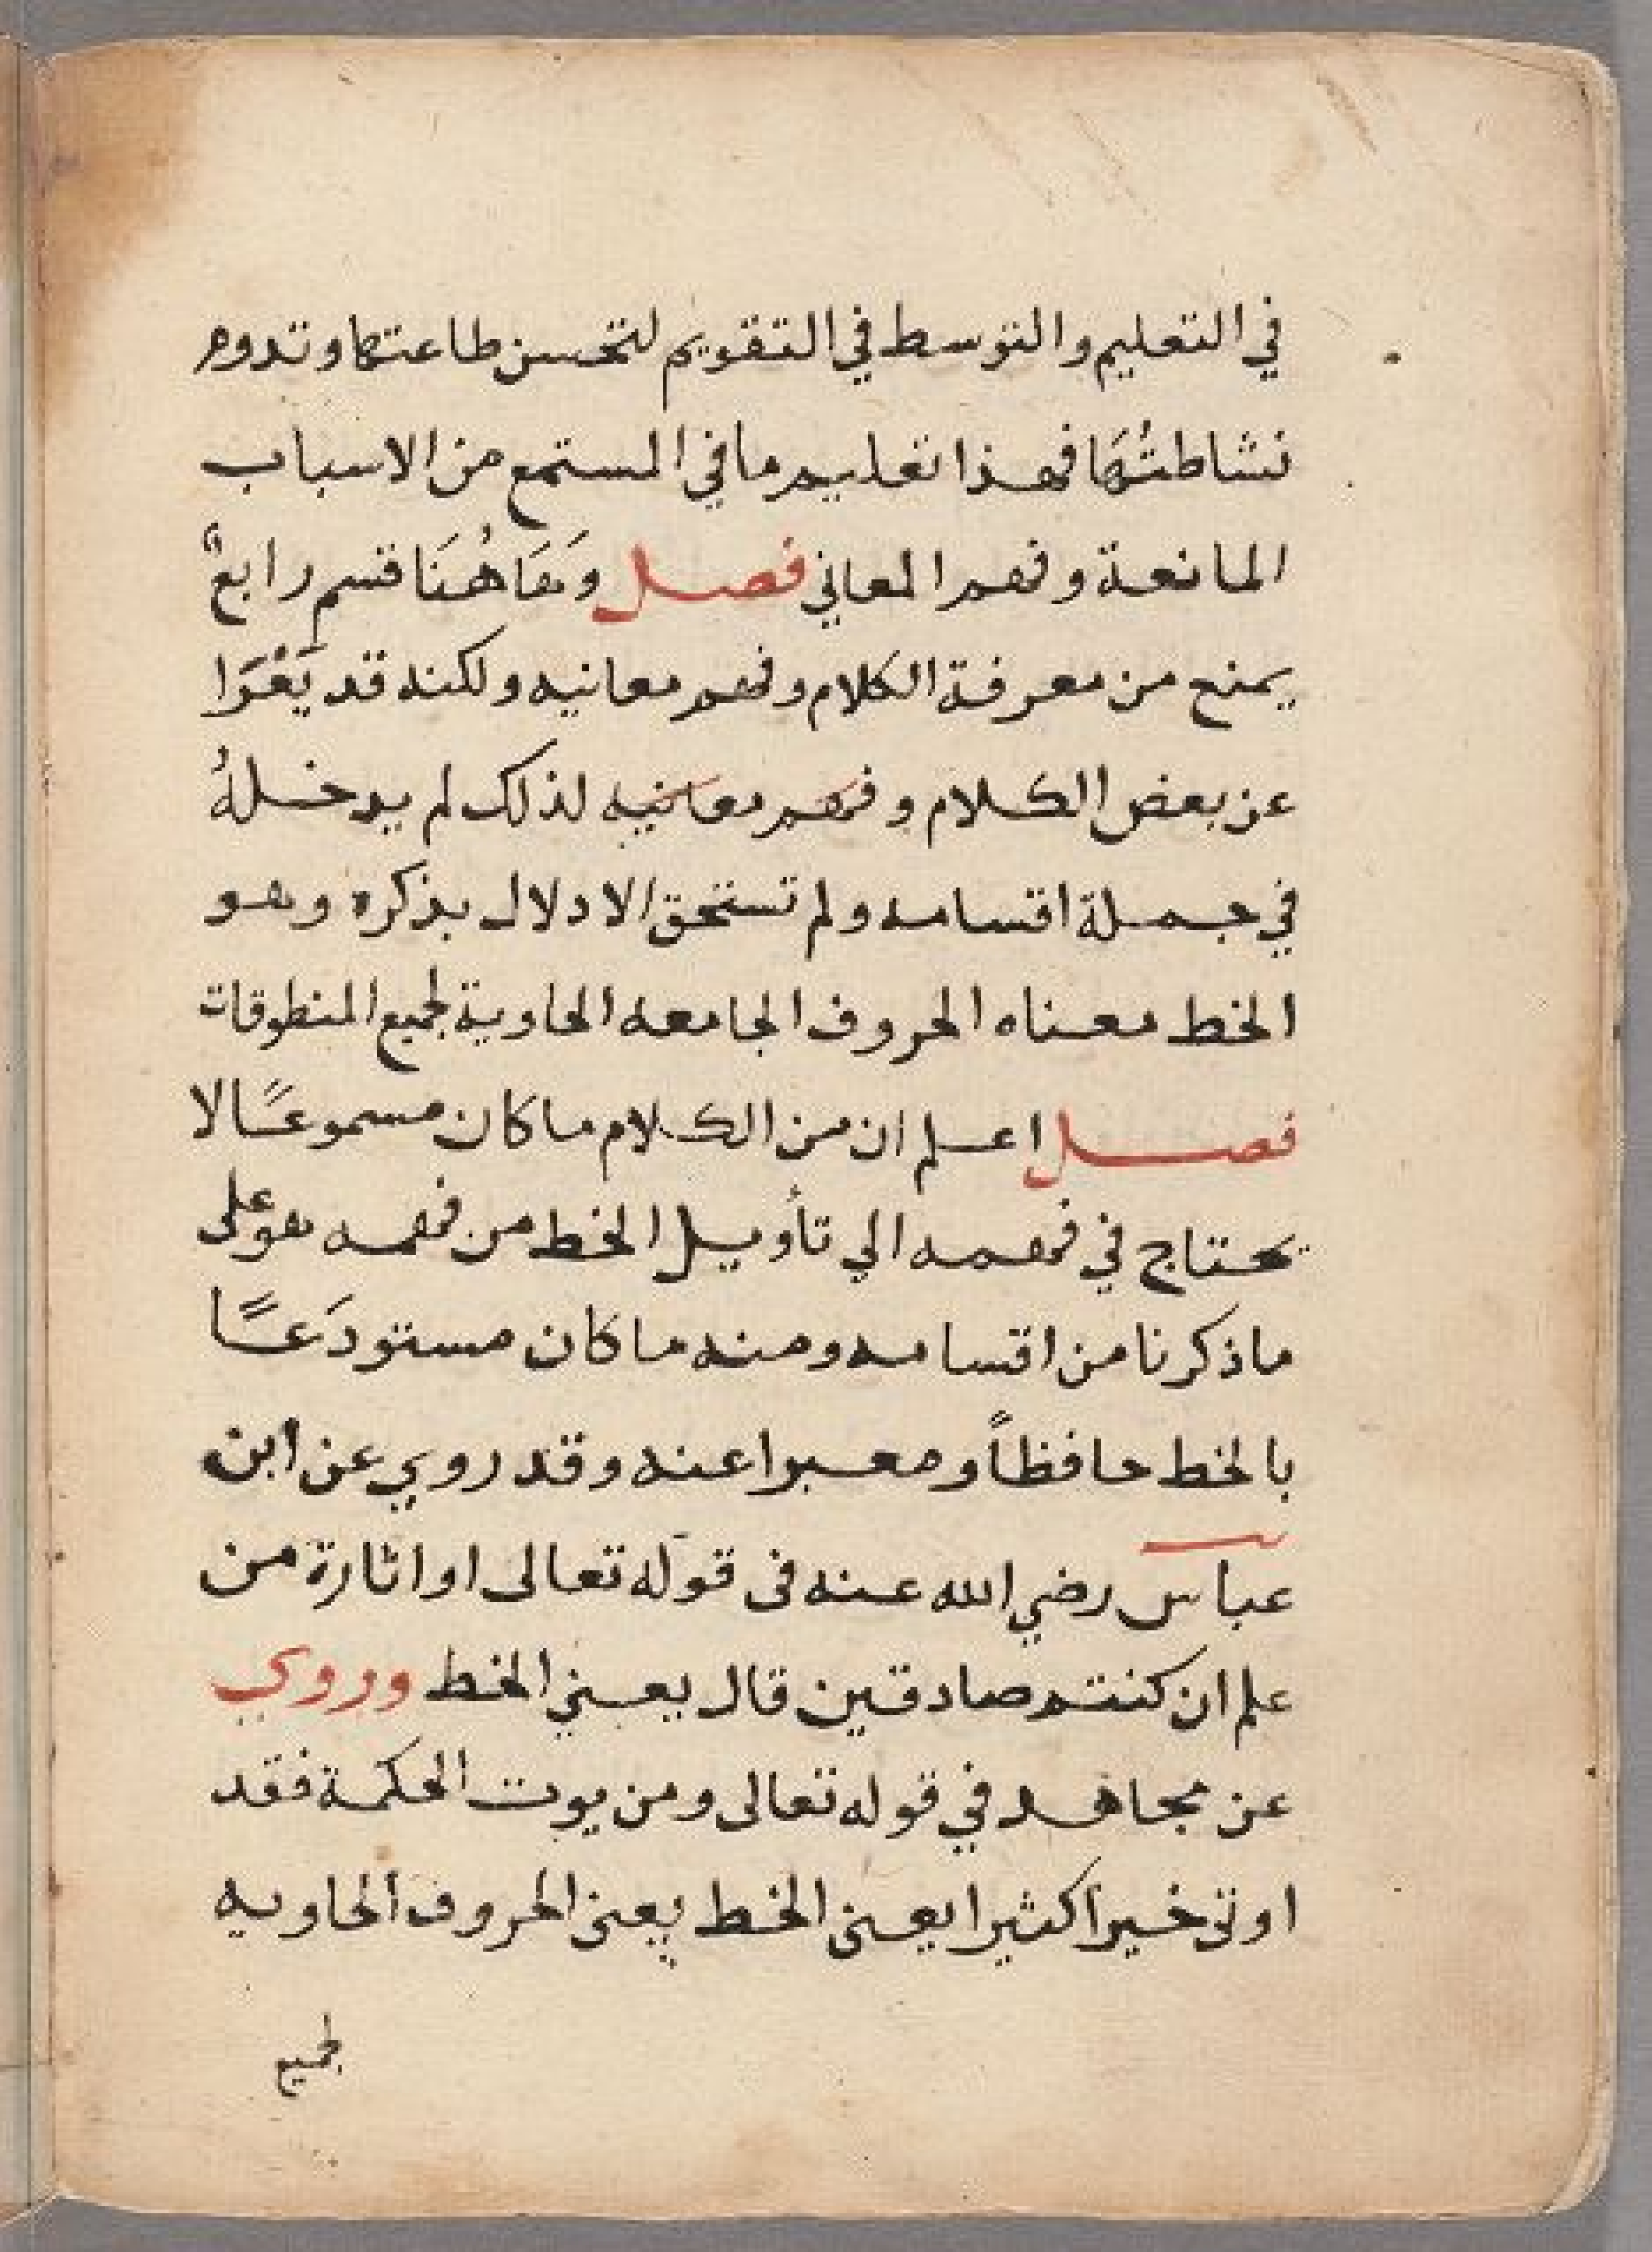 في التعليم والتوسط في التقويم لتحسن طاعتها وتدوم
نشاطتُهَا فهذا تعليم ما في المستمع من الاسباب
المانعة وفهم المعاني فصل وَهَاهُنَا قسم رابعٌ
يمنع من معرفة الكلام وفهم معانيه ولكنه قد يَعْرَا
عن بعض الكلام وفهم معانيه لذلك لم يدخلهُ
في جملة اقسامه ولم تستحق الادلال بذكره وهو
الخط معناه الحروف الجامعه الحاوية لجميع المنطوقات
فصل اعلم ان من الكلام ما كان مسموعًا لا
تحتاج في فهمه الي تأويل الخط من فهمه هو على
ما ذكرنا من اقسامه ومنه ما كان مستودَعًا
بالخط حافظاً ومعبرا عنه وقد روي عن ابن
عباس رضي الله عنه فى قوله تعالى او اثارة من
علم ان كنتم صادقين قال يعني الخط وروي
عن مجاهد في قوله تعالى ومن يوت الحكمة فقد
اوتى خيرا كثيرا يعنى الخط يعنى الحروف الحاويه
لجميع